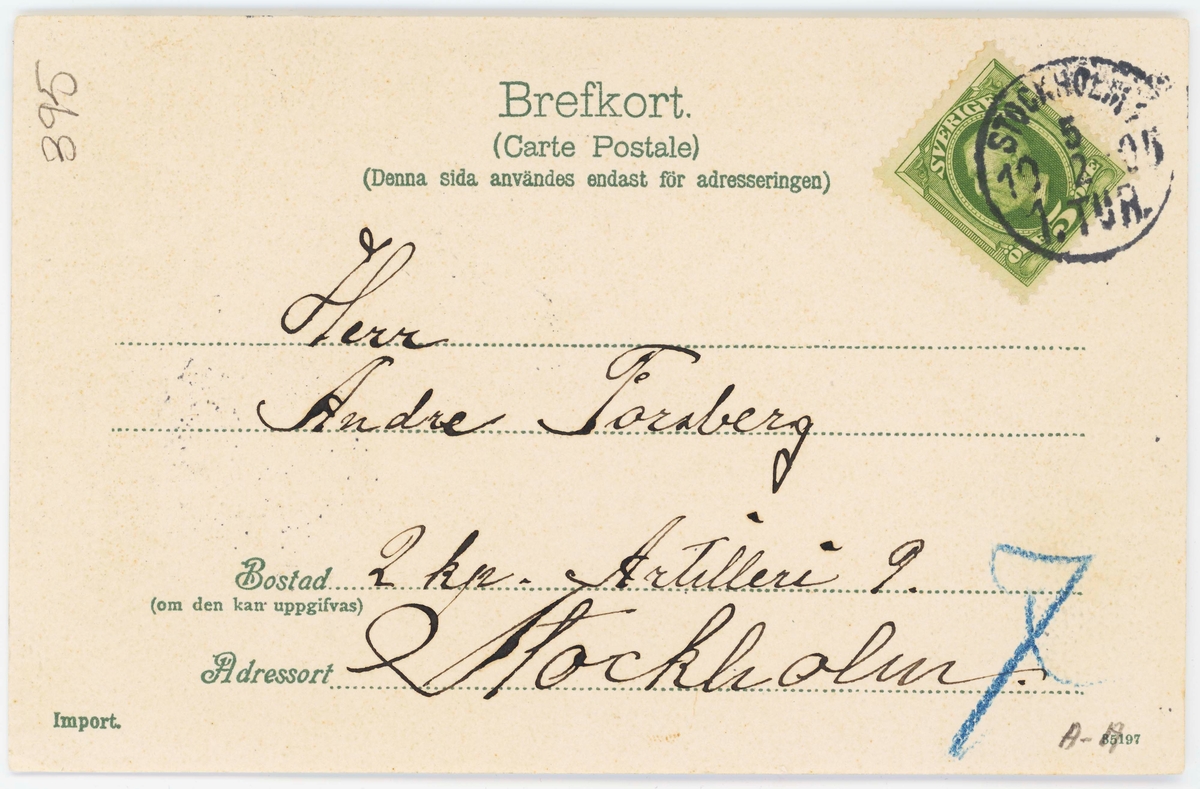 395
Brefkort.
(Carte Postale)
(Denna sida användes endast för adresseringen)
SVERIGE
5
STOCKHOLM 1
5
10 2 05
1.TUR.
Herr
Andre Forsberg
Bostad 2 kp. Artilleri 9.
(om den kan uppgifvas)
Adressort Stockholm.
7
Import.
A-
85197